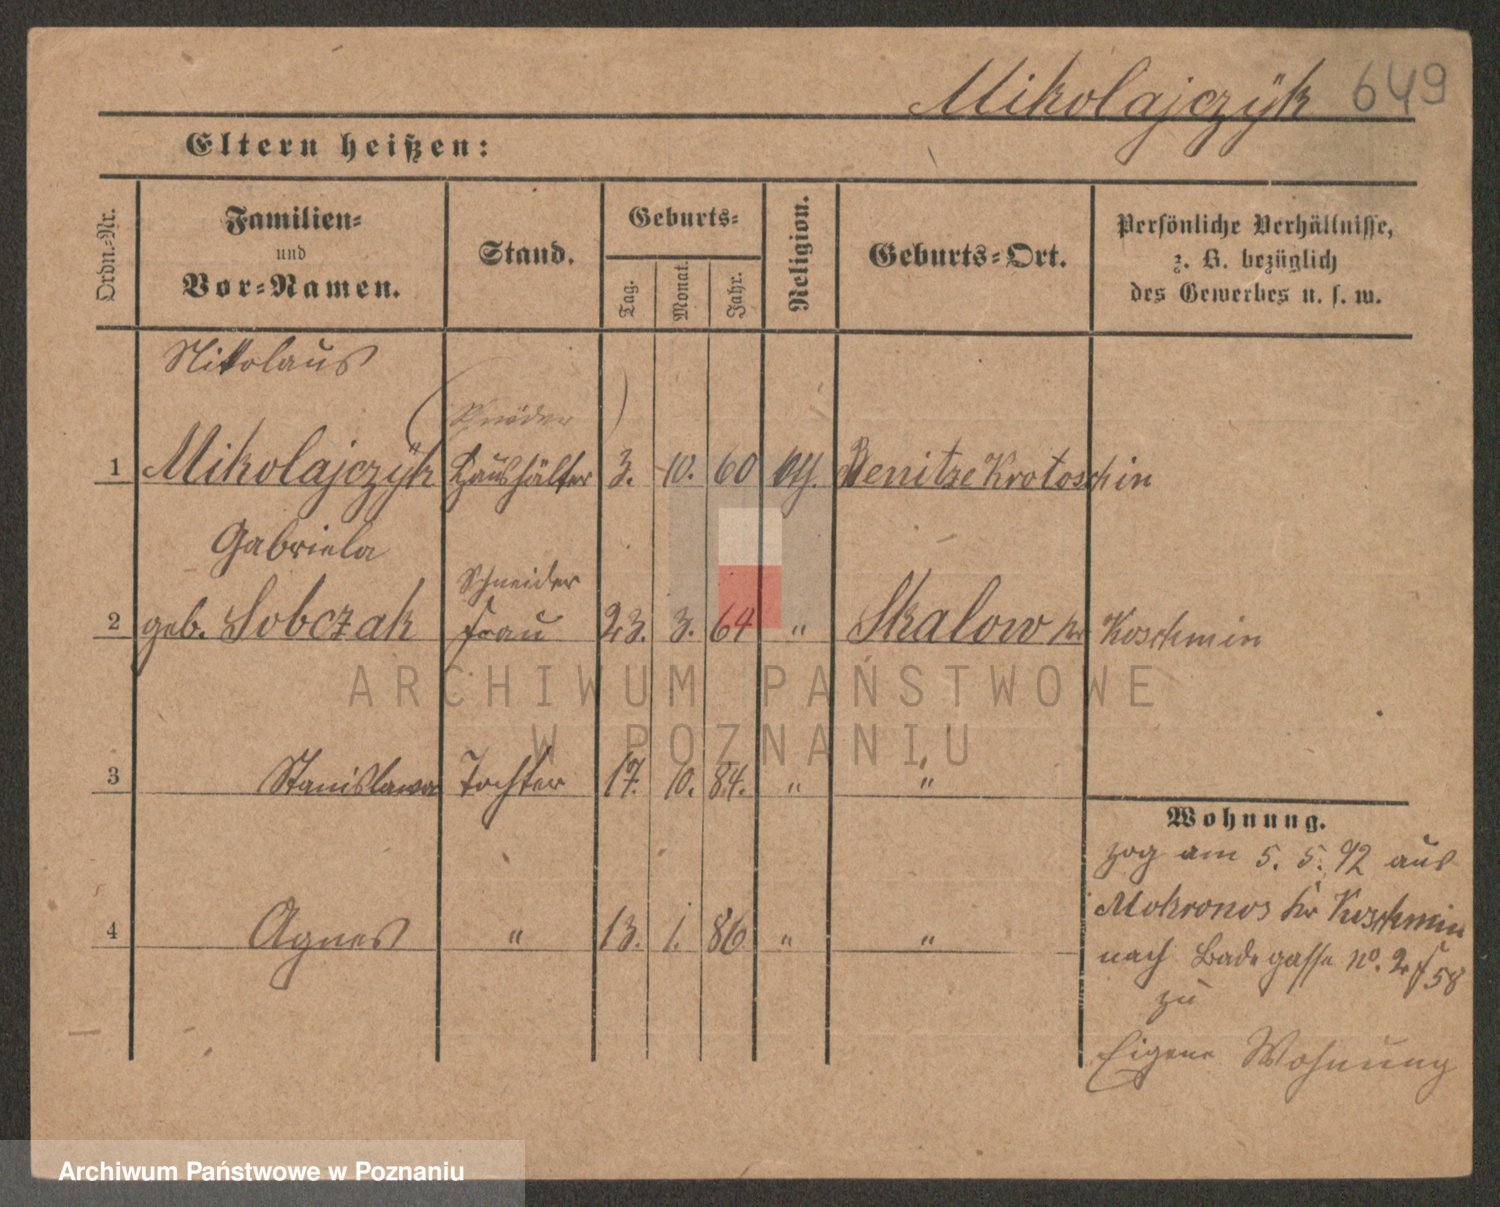 Mikolajczÿk 649
Eltern heißen:
Ordn.-Nr.
Familien-
und
Vor-Namen.
Stand.
Geburts-
Tag.
Monat.
Jahr.
Religion.
Geburts-Ort.
Persönliche Verhältnisse,
z. B. bezüglich
des Gewerbes u. s. w.
Nikolaus
1 Mikolajczÿk Haushälter 3. 10. 60 Benitze Krotoschin
Gabriela
Schneider
2 geb. Sobczak Frau 23. 3. 64 " Skalow Kr Koschmin
3 Stanislawa Tochter 17. 10. 84. " "
4 Agnes " 13. 1. 86 " "
Wohnung.
zog am 5. 5. 92 aus
Mokronos Kr Koschmin
nach Badegasse no. 2 f 58
zu
Eigene Wohnung
ARCHIWUM PAŃSTWOWE
W POZNANIU
Archiwum Państwowe w Poznaniu